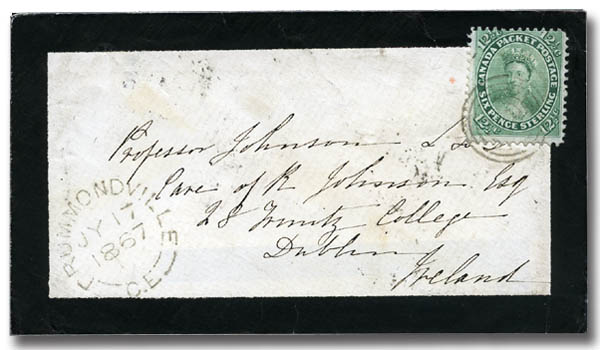 CANADA PACKET POSTAGE
SIX PENCE STERLING
12½ 12½
12½ 12½
Professor Johnson
Care of R Johnson Esq
28 Trinity College
Dublin
Ireland
DRUMMONDVILLE
JY 17
1867
C.E